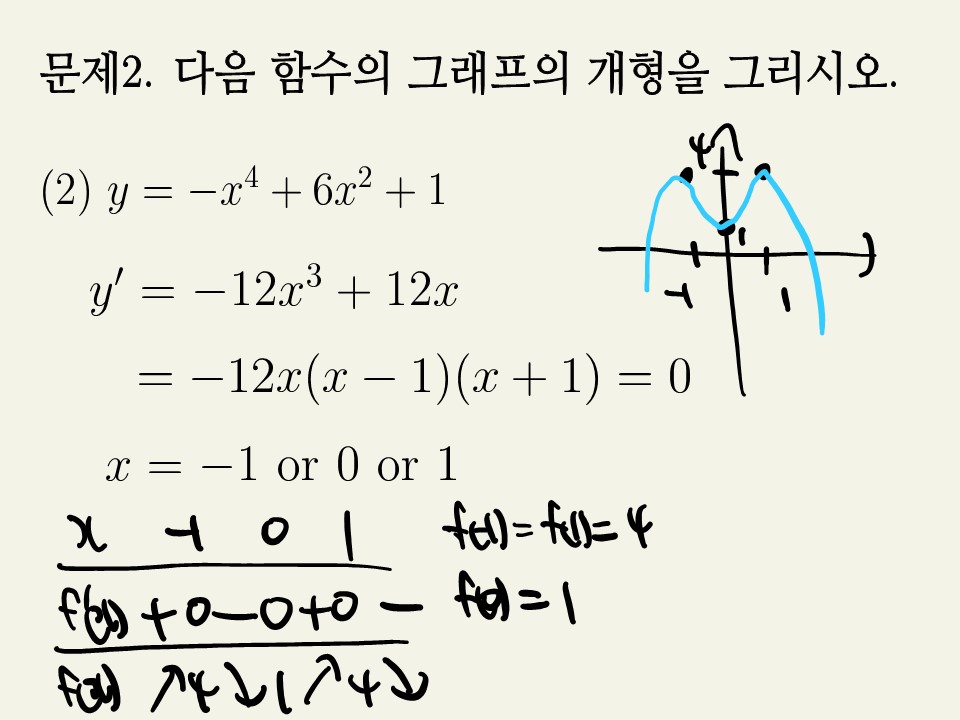 문제2. 다음 함수의 그래프의 개형을 그리시오.
(2) y = −x⁴ + 6x² + 1
y′ = −12x³ + 12x
= −12x(x − 1)(x + 1) = 0
x = −1 or 0 or 1
x -1 0 1
f'(x) + 0 − 0 + 0 −
f(x) ↗ 4 ↘ 1 ↗ 4 ↘
f(-1) = f(1) = 4
f(0) = 1
4
1
-1 1